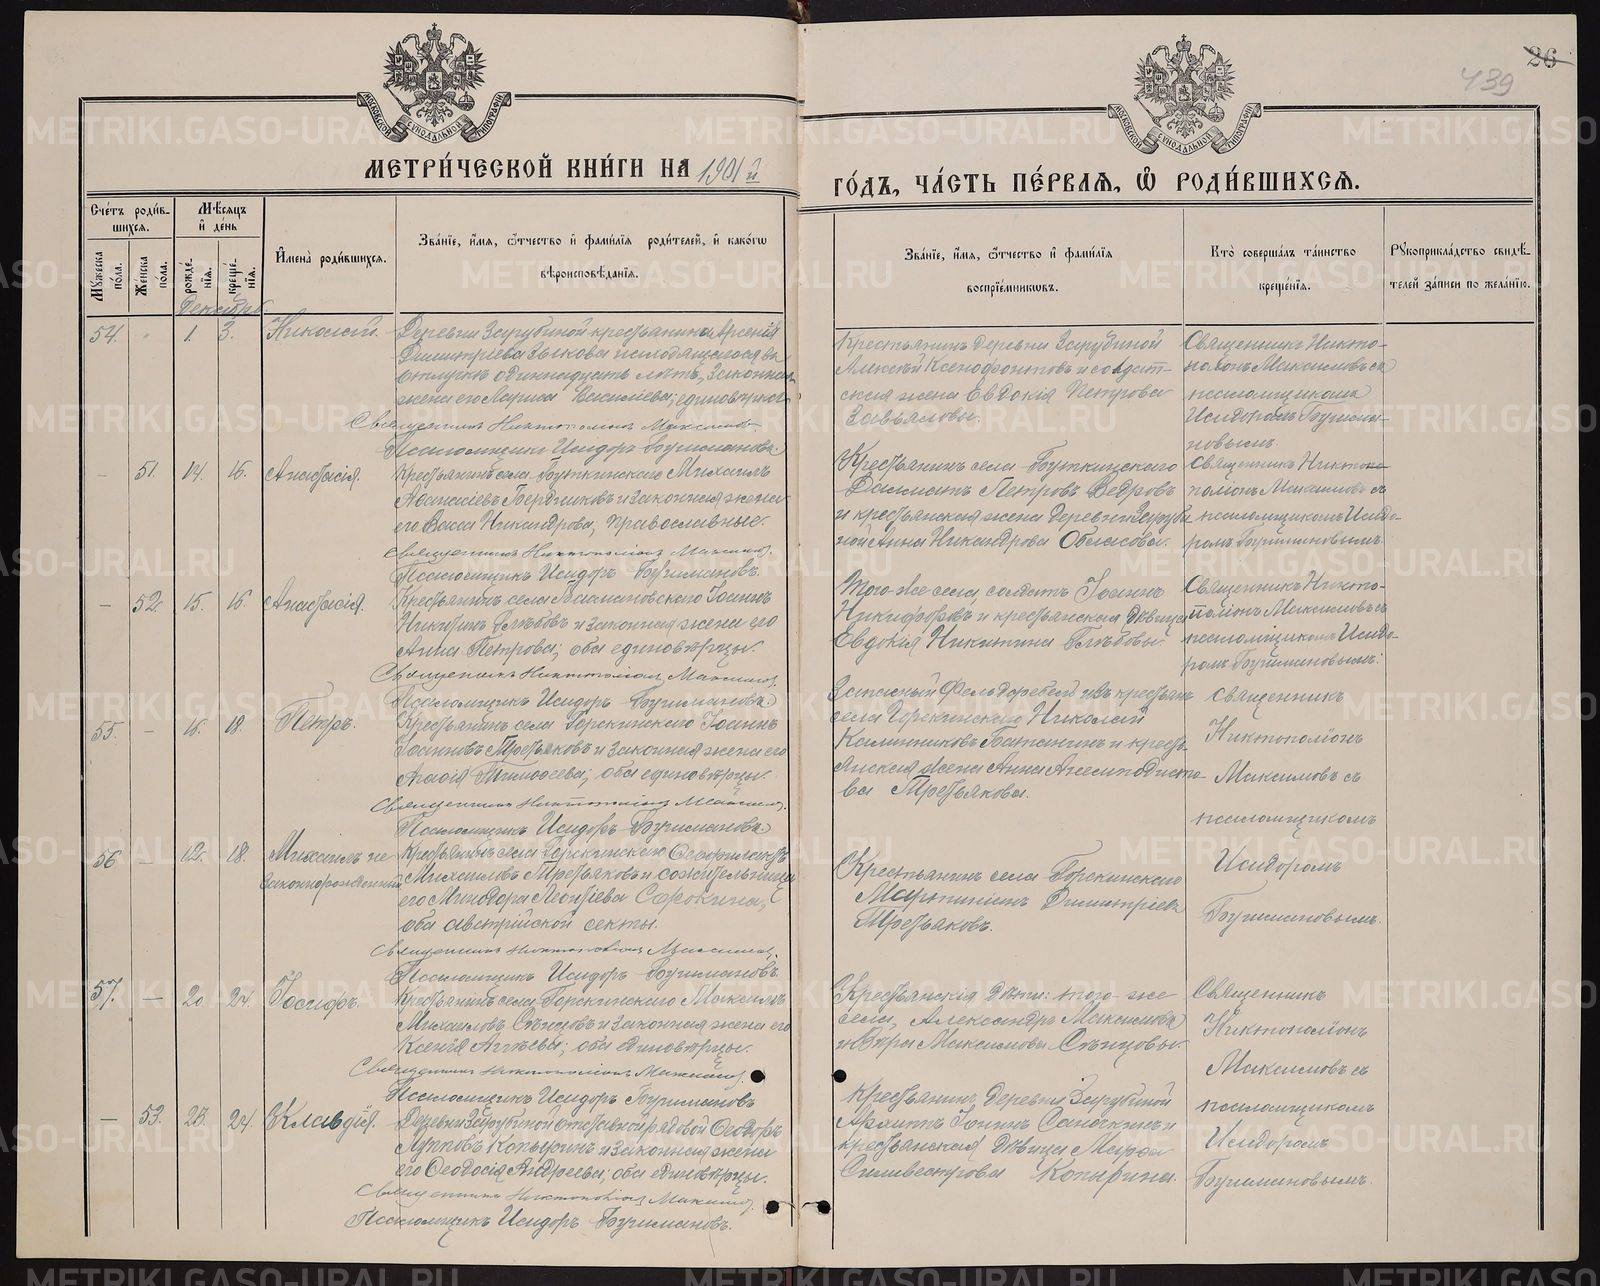 26
439
МОСКОВСКОЙ СѴНОДАЛЬНОЙ ТИПОГРАФІИ
МОСКОВСКОЙ СѴНОДАЛЬНОЙ ТИПОГРАФІИ
МЕТРИ́ЧЕСКОЙ КНИ́ГИ НА 1901й
ГО́ДЪ, ЧА́СТЬ ПЕ́РВАѦ, Ѡ҆ РОДИ́ВШИХСѦ.
Сче́тъ роди́в-
шихся.
Мѣ́сяцъ
и҆ де́нь
Му́жеска по́ла.
Же́нска по́ла.
рожде́-
нїѧ.
креще́-
нїѧ.
И҆мена̀ роди́вшихся.
Зва́нїе, и҆́мя, ѻ҆́тчество и҆ фами́лїѧ роди́телей, и҆ како́гѡ
вѣроисповѣ́данїѧ.
Зва́нїе, и҆́мя, ѻ҆́тчество и҆ фами́лїѧ
воспрїе́мникѡвъ.
Кто̀ соверша́лъ та́инство
креще́нїѧ.
Рꙋкоприкла́дство свидѣ́-
телей за́писи по жела́нїю.
Декабрь
54. " 1. 3. Николай.
Деревни Зарубиной крестьянина Арсенія
Димитріева Зыкова находящагося въ
отлучкѣ одиннадцать лѣтъ, законная
жена его Лариса Васильева;
Священникъ Никтополіонъ Максимовъ
Псаломщикъ Исидоръ Бугимановъ
Крестьянинъ деревни Зарубиной
Алексѣй Ксенофонтовъ и солдат-
ская жена Евдокія Петрова
Завьялова.
Священникъ Никто-
поліонъ Максимовъ съ
псаломщикомъ
Исидоромъ Бугима-
новымъ.
— 51. 14. 16. Анастасія.
Крестьянинъ села Буткинскаго Михаилъ
Аѳанасіевъ Бердниковъ и законная жена
его Васса Никандрова, православные.
Священникъ Никтополіонъ Максимовъ.
Псаломщикъ Исидоръ Бугимановъ.
Крестьянинъ села Буткинскаго
Далматъ Петровъ Ведровъ
и крестьянская жена деревни Заруби
ной Анна Никандрова Обласова.
Священникъ Никто-
поліонъ Максимовъ съ
псаломщикомъ Исидо-
ромъ Бугимановымъ.
— 52. 15. 16. Анастасія.
Крестьянинъ села Басмановскаго Іоаннъ
Никитинъ Глѣбовъ и законная жена его
Анна Петрова; оба единовѣрцы.
Священникъ Никтополіонъ Максимовъ.
Псаломщикъ Исидоръ Бугимановъ
Того-же села, солдатъ Іоаннъ
Никифоровъ и крестьянская дѣвица
Евдокія Никитина Глѣбовы.
Священникъ Никто-
поліонъ Максимовъ съ
псаломщикомъ Исидо-
ромъ Бугимановымъ.
55. — 16. 18. Петръ.
Крестьянинъ села Горскинскаго Іоаннъ
Іоанновъ Третьяковъ и законная жена его
Агаѳія Тимоѳеева; оба единовѣрцы.
Священникъ Никтополіонъ Максимовъ.
Псаломщикъ Исидоръ Бугимановъ
Запасный Фельдфебель изъ крестьянъ
села Горскинскаго Николай
Калинниковъ и кресть-
янская жена Анна
ва Третьяковы.
Священникъ
Никтополіонъ
Максимовъ съ
псаломщикомъ
Исидоромъ
Бугимановымъ.
56 — 12. 18. Михаилъ не
законнорожденный
Крестьянинъ села Горскинскаго Ѳеофилактъ
Михаиловъ Третьяковъ и сожительница
его Минодора Леонтіева Сорокина,
оба австрійской секты.
Священникъ Никтополіонъ Максимовъ.
Псаломщикъ Исидоръ Бугимановъ.
Крестьянинъ села Горскинскаго
Мартиніанъ Димитріевъ
Третьяковъ.
57. — 20. 24. Іосифъ.
Крестьянинъ села Горскинскаго Максимъ
Михаиловъ Слѣпцовъ и законная жена его
Ксенія Аггѣева; оба единовѣрцы.
Священникъ Никтополіонъ Максимовъ.
Псаломщикъ Исидоръ Бугимановъ
Крестьянскія дѣти: того-же
села, Александръ Максимовъ
и Вѣра Максимова Слѣпцовы.
Священникъ
Никтополіонъ
Максимовъ съ
псаломщикомъ
Исидоромъ
Бугимановымъ.
— 53. 23. 24. Клавдія.
Деревни Зарубиной отставной рядовой Ѳеодоръ
Лупповъ Копыринъ и законная жена
его Ѳеодосія Андреева; оба единовѣрцы.
Священникъ Никтополіонъ Максимовъ.
Псаломщикъ Исидоръ Бугимановъ.
Крестьянинъ деревни Зарубиной
Архипъ Іонинъ Саночкинъ и
крестьянская дѣвица Марѳа
Сильвестрова Копырина.
METRIKI.GASO-URAL.RU